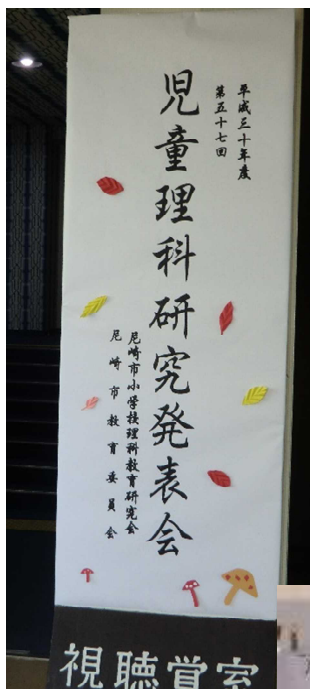 平成三十年度
第五十七回
児童理科研究発表会
尼崎市小学校理科教育研究会
尼崎市教育委員会
視聴覚室